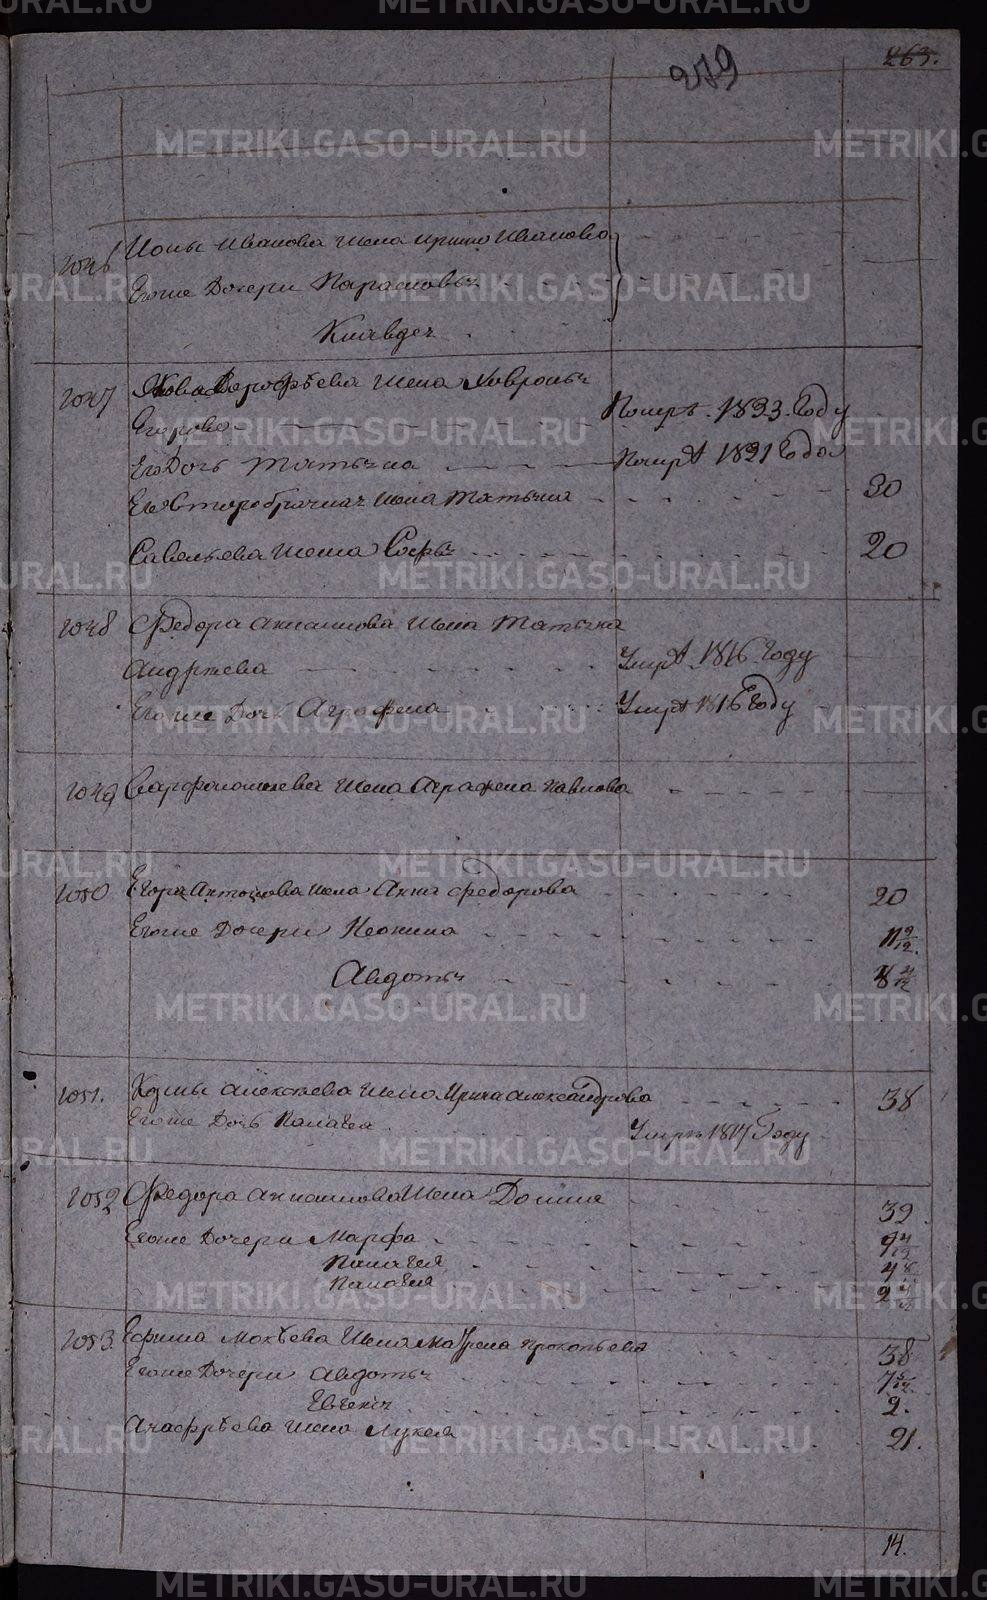 263.
279
1046 Ионы Иванова жена Ирина Иванова
Егоже Дочери Парасковья
Клавдея
1047 Якова Дорофѣева жена Хавронья
Егорова Помрѣ. 1823. Году
Его Дочь Татьяна Помрѣ 1821 Года
Его второбрачная жена Татьяна 30
Савельева жена Софья 20
1048 Федора жена Татьяна
Андреева Умрѣ. 1816. Году
Егоже Дочь Аграфена Умрѣ 1816 Году
1049 жена Аграфена Павлова
1050 Егора Антонова жена Анна Федорова 20
Егоже Дочери Неонила 11 9/12.
Авдотья
1051. Козмы Алексѣева жена Ирина Александрова 38
Егоже Дочь Палагея Умрѣ 1817 Году
1052 Федора жена Домна 39.
Егоже Дочери Марфа
Палагея
Палагея
1053. Ефима Мокѣева жена Матрена Прокопьева 38
Егоже Дочери Авдотья
Евгенія 2.
жена Лукея 21.
14.
METRIKI.GASO-URAL.RU